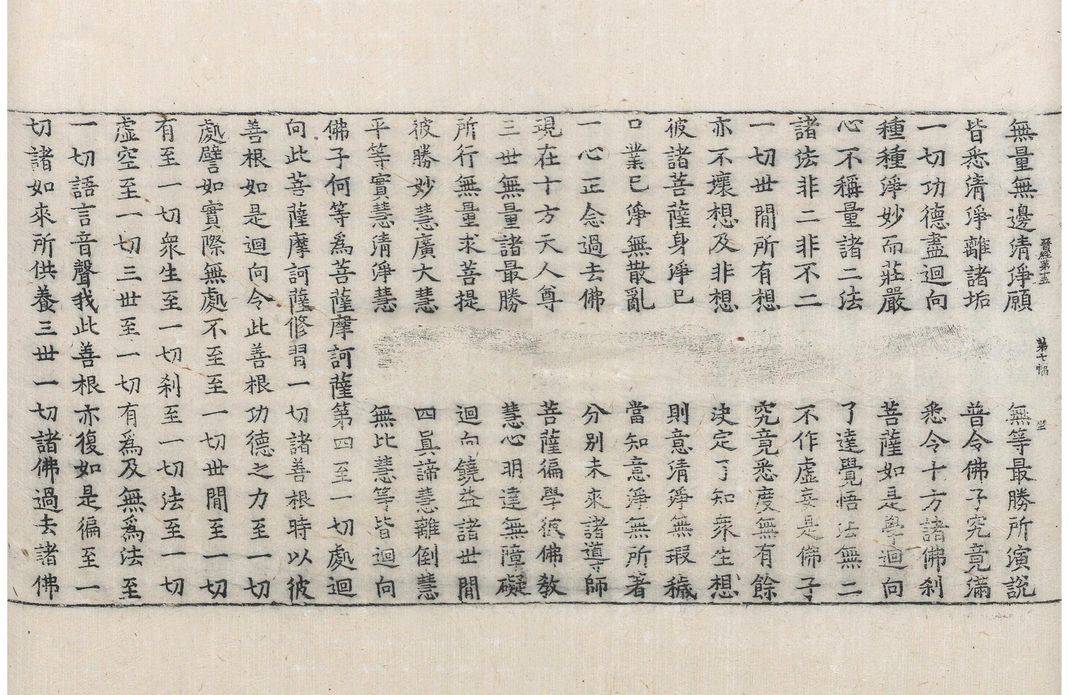 無量無邊清淨願　無等最勝所演說
皆悉清淨離諸垢　普令佛子究竟滿
一切功德盡迴向　悉令十方諸佛刹
種種淨妙而莊嚴　菩薩如是學迴向
心不稱量諸二法　了達覺悟法無二
諸法非二非不二　不作虛妄是佛子
一切世閒所有想　究竟悉度無有餘
亦不壞想及非想　决定了知衆生想
彼諸菩薩身淨已　則意清淨無瑕穢
口業已淨無散亂　當知意淨無所著
一心正念過去佛　分別未來諸導師
現在十方天人尊　菩薩徧學彼佛教
三世無量諸最勝　慧心明達無障礙
所行無量求菩提　迴向饒益諸世閒
彼勝妙慧廣大慧　四眞諦慧離倒慧
平等實慧清淨慧　無比慧等皆迴向
佛子何等爲菩薩摩訶薩第四至一切處迴
向此菩薩摩訶薩修習一切諸善根時以彼
善根如是迴向令此善根功德之力至一切
處譬如實際無處不至至一切世閒至一切
有至一切衆生至一切刹至一切法至一切
虛空至一切三世至一切有爲及無爲法至
一切語言音聲我此善根亦復如是徧至一
切諸如來所供養三世一切諸佛過去諸佛
第七幅